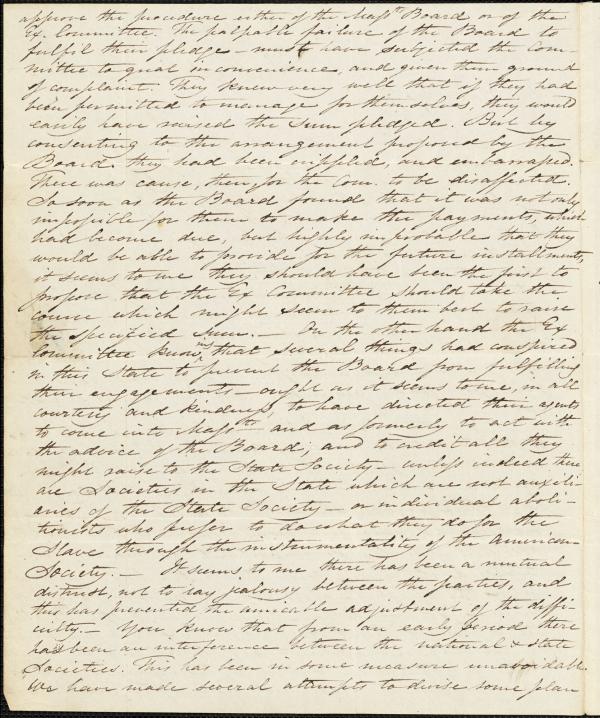 approve the procedure either of the Massts Board or of the
Ex. Committee. The palpable failure of the Board to
fulfil their pledge – must have subjected the Com-
mittee to great inconvenience, and given them ground
of complaint. They knew very well that if they had
been permitted to manage for themselves, they would
easily have raised the sum pledged. But by
consenting to the arrangement proposed by the
Board they had been crippled, and embarrassed.
There was cause, then, for the Com. to be disaffected.
So soon as the Board found that it was not only
impossible for them to make the payments, which
had become due, but highly improbable that they
would be able to provide for the future installments,
it seems to me they should have been the first to
propose that the Ex Committee should take the
course which might seem to them best to raise
the specified sum. – On the other hand the Ex
Committee knowing that several things had conspired
in this State to prevent the Board from fulfilling
their engagements – ought as it seems to me, in all
courtesy and kindness, to have directed their agents
to come into Massts – and as formerly to act with
the advice of the Board; and to credit all they
might raise to the State Society – unless indeed there
are Societies in the State which are not auxili-
aries of the State Society – or individual aboli-
tionists who prefer to do what they do for the
Slave through the instrumentality of the American
Society. – It seems to me there has been a mutual
distrust, not to say jealousy between the parties, and
this has prevented the amicable adjustment of the diffi-
culty. – You know that from an early period there
has been an interference between the national & state
Societies. This has been in some measure unavoidable.
We have made several attempts to devise some plan